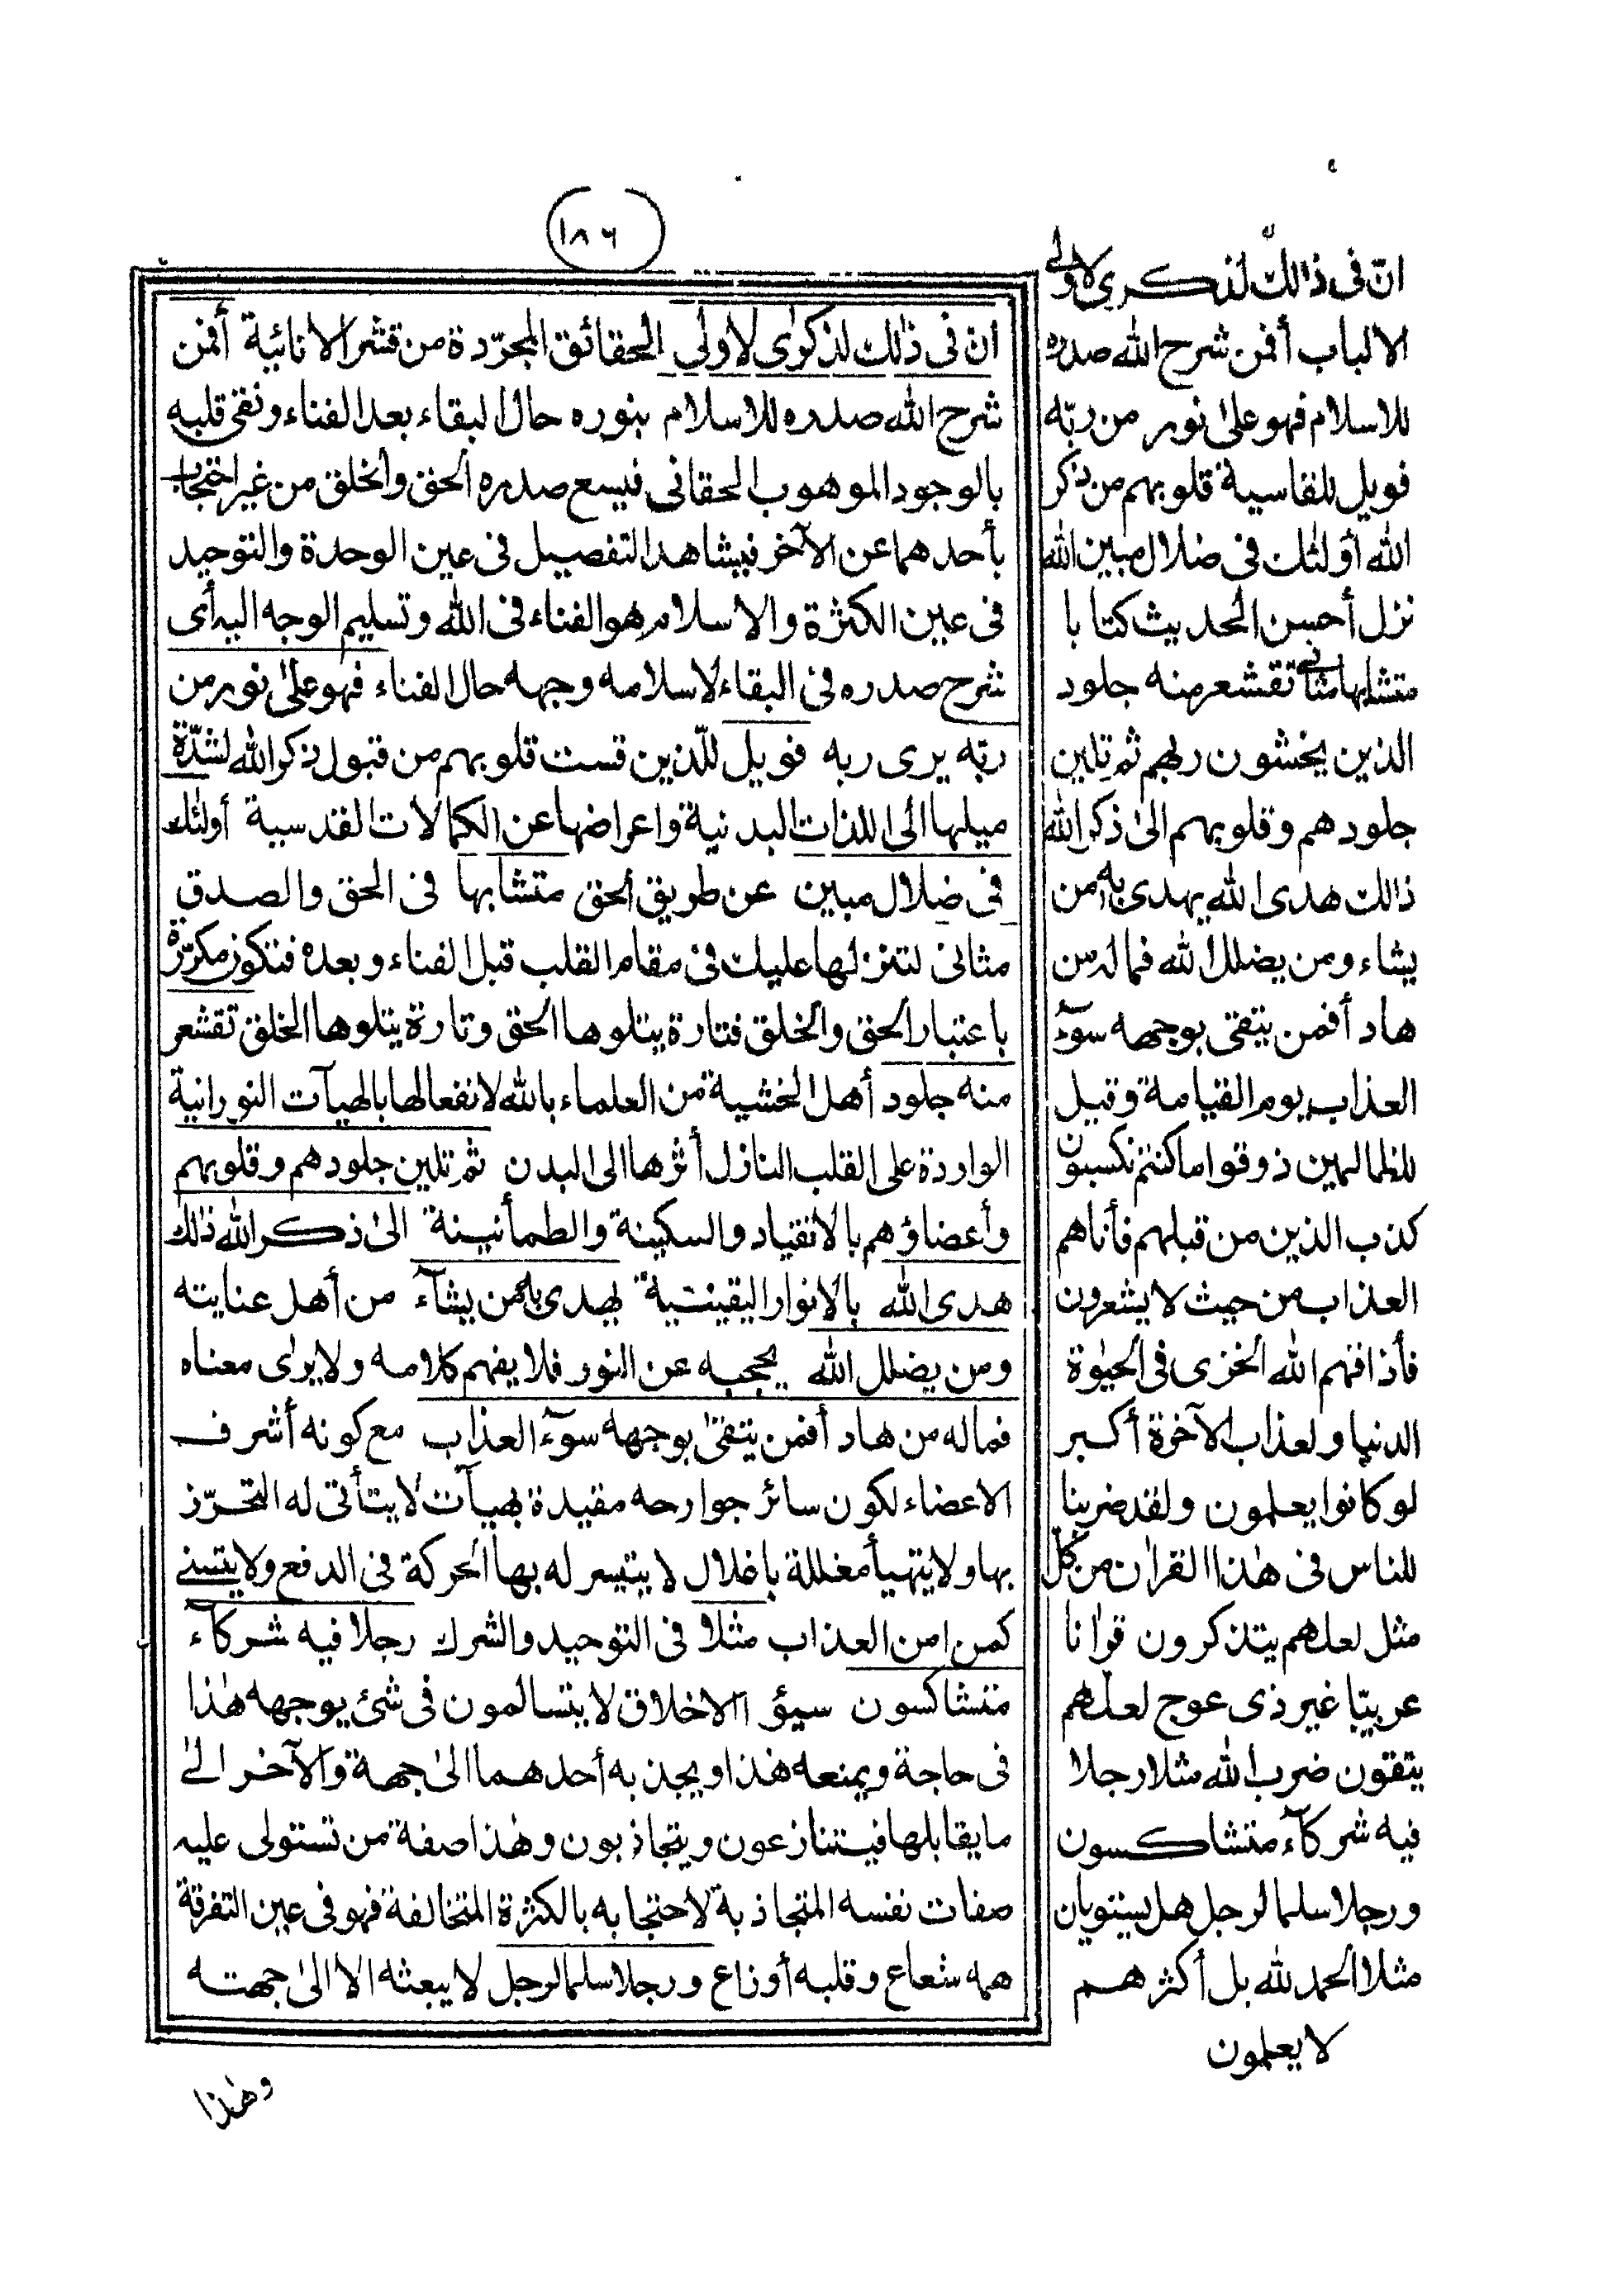 (١٨٦)
انّ فى ذالك لذكرى لاولى
الالباب أفمن شرح الله صدره
للاسلام فهو على نور من ربّه
فويل للقاسية قلوبهم من ذكر
الله أولئك فى ضلال مبين الله
نزل أحسن الحديث كتابا
متشابها مثانى تقشعر منه جلود
الذين يخشون ربهم ثم تلين
جلودهم وقلوبهم الى ذكر الله
ذالك هدى الله يهدى به من
يشاء ومن يضلل الله فماله من
هاد أفمن يتقى بوجهه سوٓء
العذاب يوم القيامة وقيل
للظالمين ذوقوا ما كنتم تكسبون
كذب الذين من قبلهم فأتاهم
العذاب من حيث لا يشعرون
فأذاقهم الله الخزى فى الحيوٰة
الدنيا ولعذاب الآخرة أكبر
لو كانوا يعلمون ولقد ضربنا
للناس فى هٰذا القرآن من كلّ
مثل لعلهم يتذكرون قرآنا
عربيّا غير ذى عوج لعلهم
يتقون ضرب الله مثلا رجلا
فيه شركآء متشاكسون
ورجلا سلما لرجل هل يستويان
مثلا الحمد لله بل أكثرهم
لا يعلمون
ان فى ذٰلك لذكرٰى لاولى الحقائق المجرّدة من قشر الانائية أفمن
شرح الله صدره للاسلام بنوره حال البقاء بعد الفناء ونقى قلبه
بالوجود الموهوب الحقانى فيسع صدره الحق والخلق من غير احتجاب
بأحدهما عن الآخر فيشاهد التفصيل فى عين الوحدة والتوحيد
فى عين الكثرة والاسلام هو الفناء فى الله وتسليم الوجه اليه أى
شرح صدره فى البقاء لاسلامه وجهه حال الفناء فهو على نور من
ربّه يرى ربه فويل للّذين قست قلوبهم من قبول ذكر الله لشدّة
ميلها الى اللذات البدنية واعراضها عن الكمالات القدسية أولئك
فى ضلال مبين عن طريق الحق متشابها فى الحق والصدق
مثانى لتنزلها عليك فى مقام القلب قبل الفناء وبعده فتكون مكرّرة
باعتبار الحق والخلق فتارة يتلوها الحق وتارة يتلوها الخلق تقشعر
منه جلود أهل الخشية من العلماء بالله لانفعالها بالهيآت النورانية
الواردة على القلب النازل أثرها الى البدن ثم تلين جلودهم وقلوبهم
وأعضاؤهم بالانقياد والسكينة والطمأنينة الى ذكر الله ذٰلك
هدى الله بالانوار اليقينية يهدى به من يشآء من أهل عنايته
ومن يضلل الله يحجبه عن النور فلا يفهم كلامه ولا يرى معناه
فماله من هاد أفمن يتقى بوجهه سوٓء العذاب مع كونه أشرف
الاعضاء لكون سائر جوارحه مقيدة بهيآت لا يتأتى له التحرّز
بها ولا يتهيأ مغللة باغلال لا يتيسر له بها الحركة فى الدفع ولا يتسنى
كمن امن العذاب مثلا فى التوحيد والشرك رجلا فيه شركآء
متشاكسون سيؤا الاخلاق لا يتسالمون فى شئ يوجهه هٰذا
فى حاجة ويمنعه هذا ويجذبه أحدهما الى جهة والآخر الى
ما يقابلها فيتنازعون ويتجاذبون وهٰذا صفة من تستولى عليه
صفات نفسه المتجاذبة لاحتجابه بالكثرة المتخالفة فهو فى عين التفرقة
همه شعاع وقلبه أوزاع ورجلا سلما لرجل لا يبعثه الا الى جهته
وهٰذا